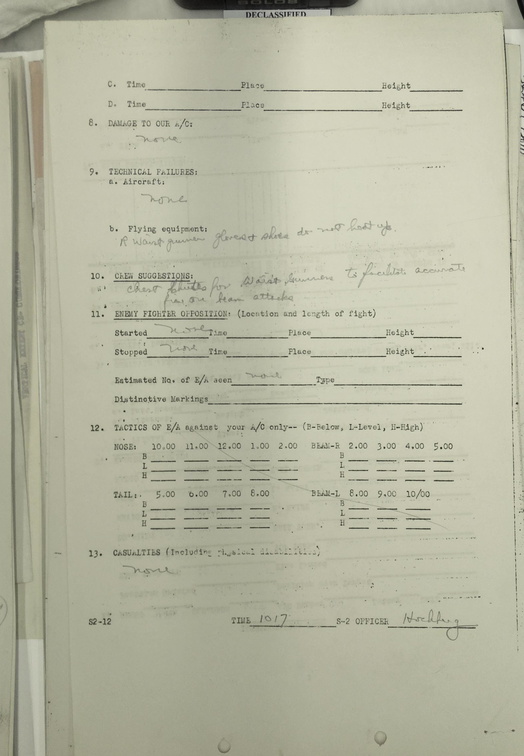 DECLASSIFIED
C. Time Place Height
D. Time Place Height
8. DAMAGE TO OUR A/C:
none
9. TECHNICAL FAILURES:
a. Aircraft:
none
b. Flying equipment:
R Waist gunner gloves & shoes do not heat up.
10. CREW SUGGESTIONS:
Chest for Waist Gunners to facilitate accurate
fire on beam attacks
11. ENEMY FIGHTER OPPOSITION: (Location and length of fight)
Started none Time Place Height
Stopped none Time Place Height
Estimated No. of E/A seen none Type
Distinctive Markings
12. TACTICS OF E/A against your A/C only-- (B-Below, L-Level, H-High)
NOSE: 10.00 11.00 12.00 1.00 2.00 BEAM-R 2.00 3.00 4.00 5.00
B B
L L
H H
TAIL: 5.00 6.00 7.00 8.00 BEAM-L 8.00 9.00 10/00
B B
L L
H H
13. CASUALTIES (Including physical
none
S2-12 TIME 1017 S-2 OFFICER